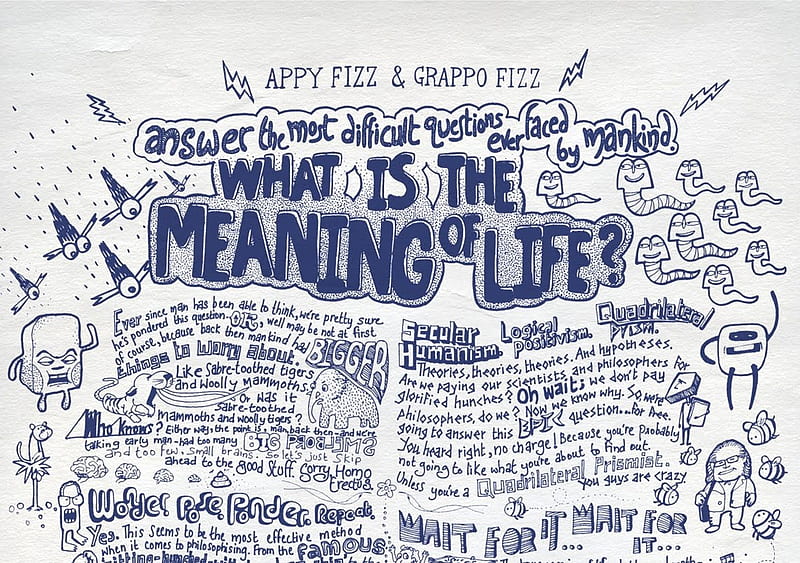 APPY FIZZ & GRAPPO FIZZ
answer the most difficult questions ever faced by mankind.
WHAT IS THE
MEANING OF LIFE?
Ever since man has been able to think, we're pretty sure
he's pondered this question. OR, well may be not at first
of course, because back then mankind had BIGGER
things to worry about.
Like Sabre-toothed tigers
and woolly mammoths.
Or was it
Sabre-toothed
Mammoths and woolly tigers?
Who knows? Either way, the point is - man back then - and we're
talking early man - had too many BIG PROBLEMS
and too few, small brains. So let's just skip
ahead to the good stuff. Sorry, Homo
Erectus.
Wonder. Pose. Ponder. Repeat.
Yes. This seems to be the most effective method
when it comes to philosophising. From the famous
Secular Humanism. Logical positivism. Quadrilateral prism.
Theories, theories, theories. And hypotheses.
Are we paying our scientists and philosophers for
glorified hunches? Oh wait; we don't pay
Philosophers, do we? Now we know why. So, we're
going to answer this EPIC question...for free.
You heard right, no charge! Because you're probably
not going to like what you're about to find out.
Unless you're a Quadrilateral Prismist.
you guys are crazy.
WAIT FOR IT WAIT FOR
IT...